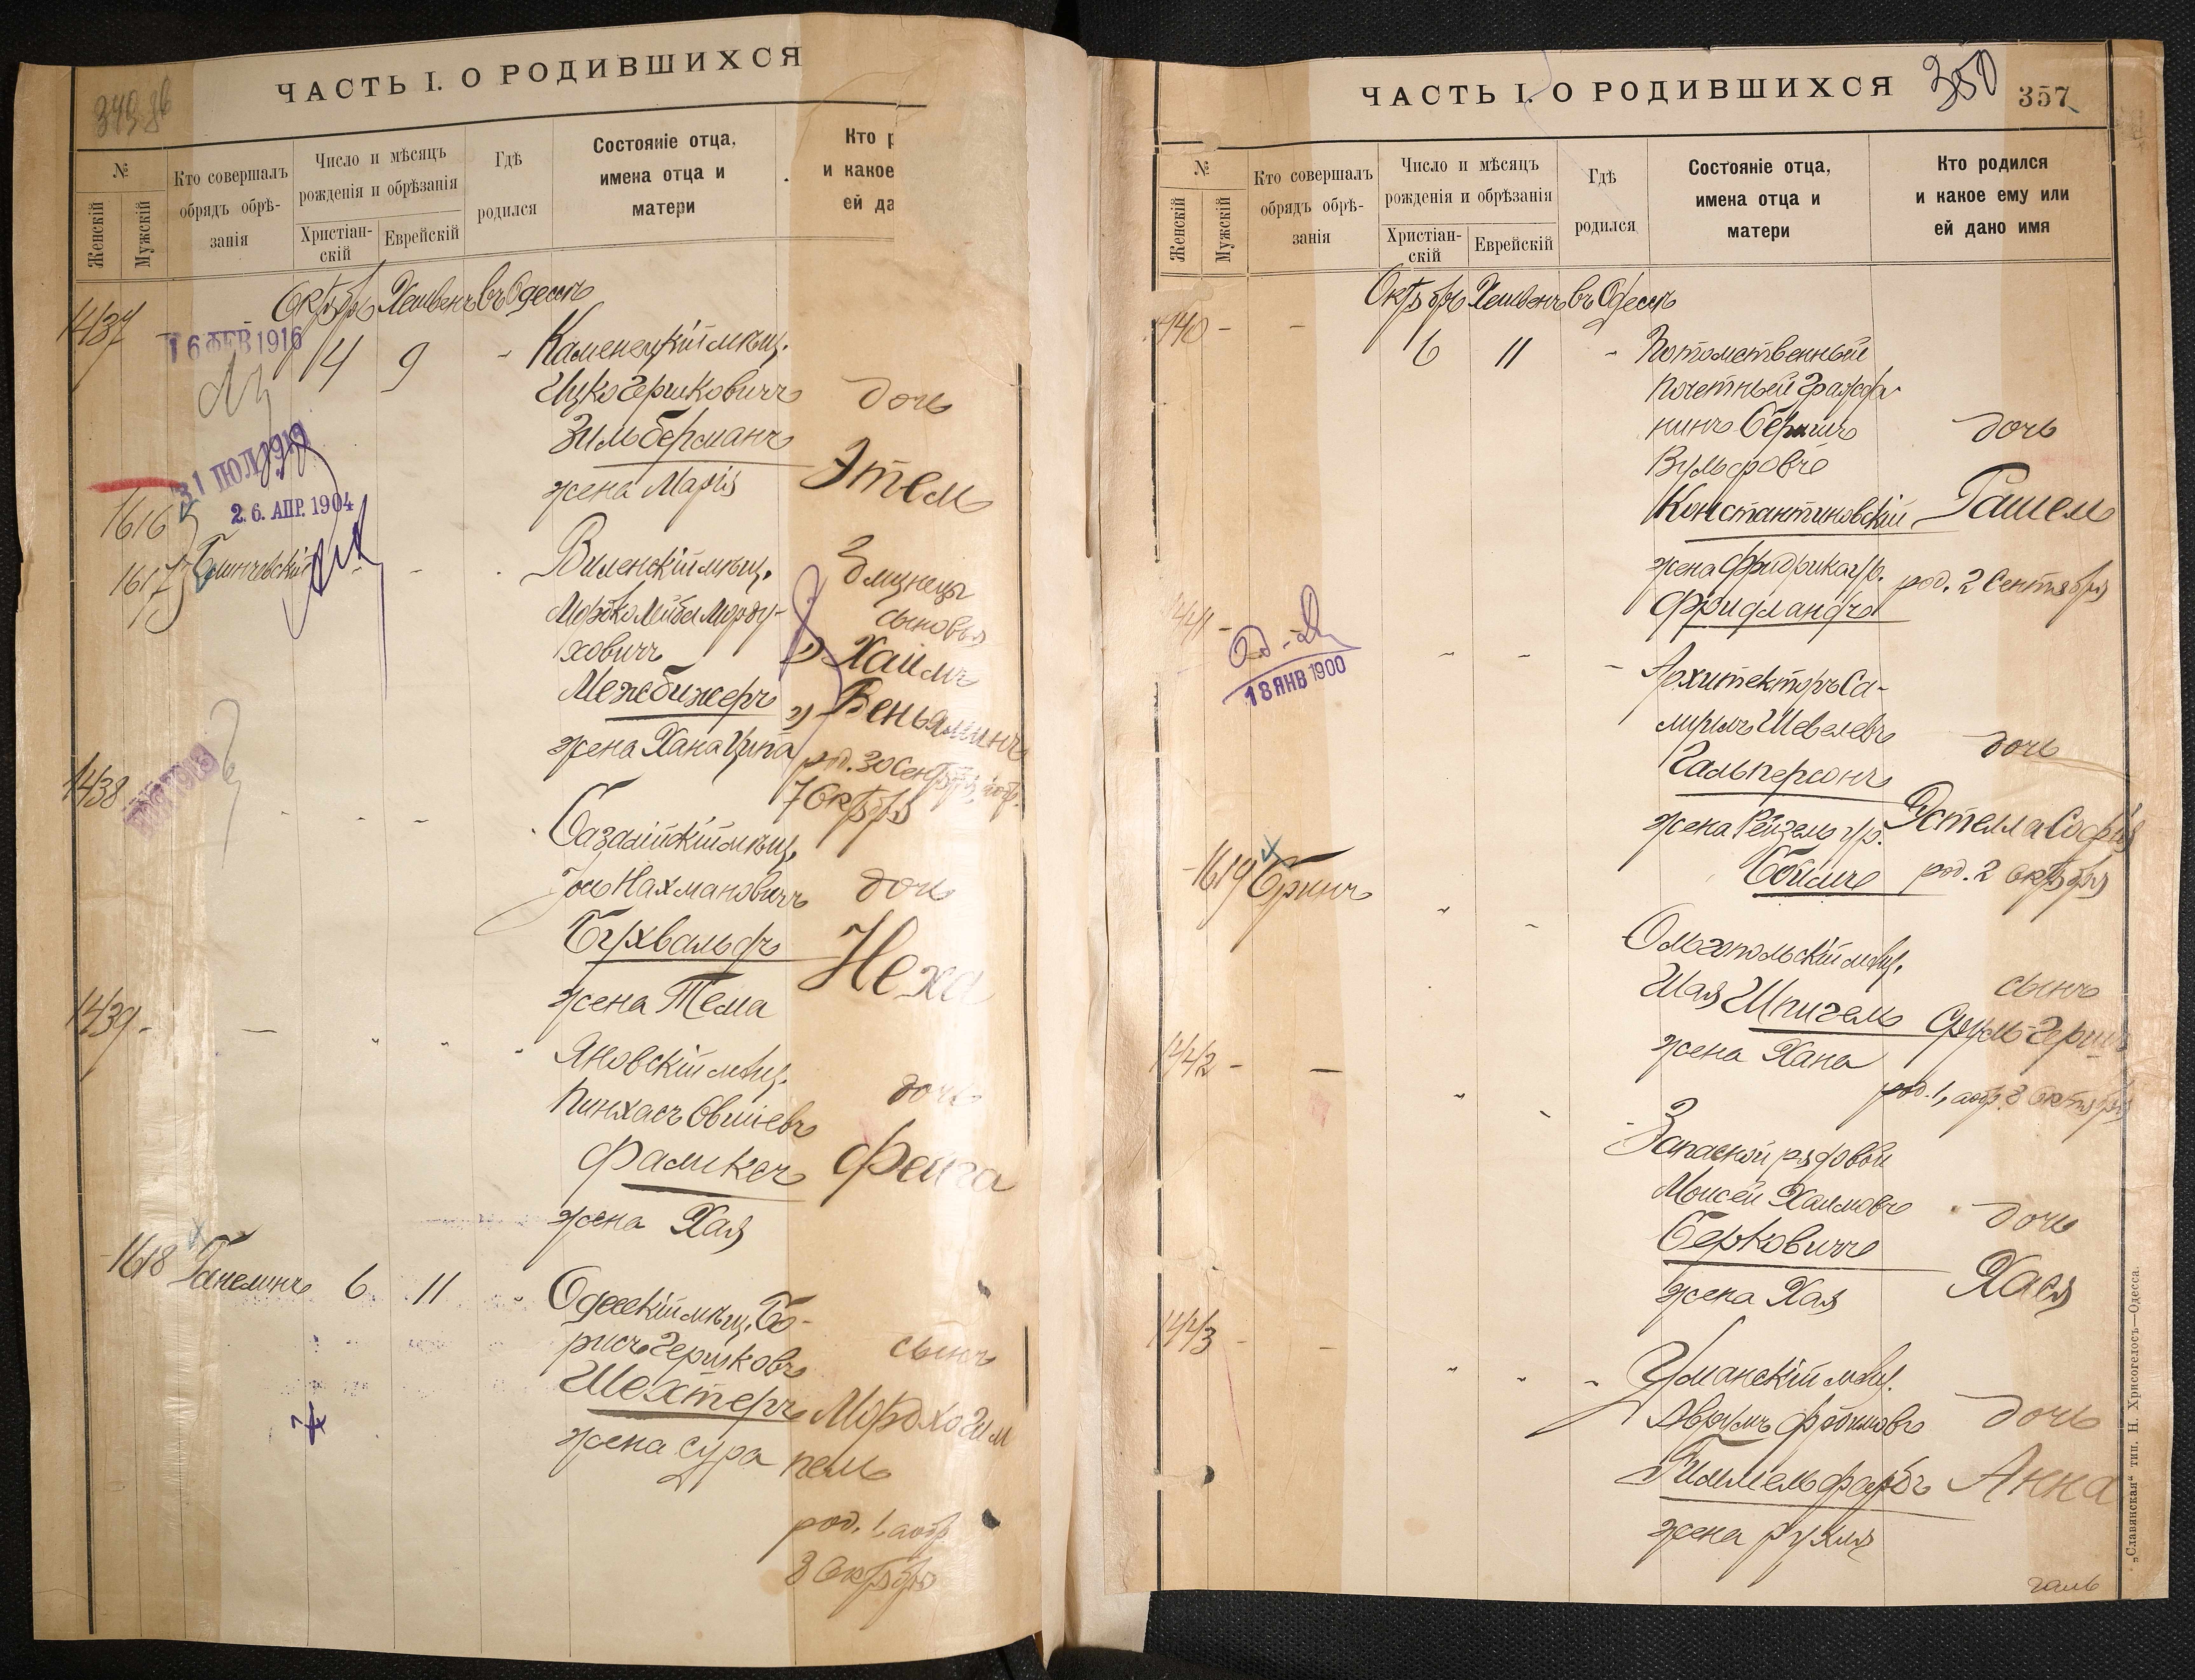 343 об
ЧАСТЬ I. О РОДИВШИХСЯ
№
Женскій
Мужскій
Кто совершалъ
обрядъ обрѣ-
занія
Число и мѣсяцъ
рожденія и обрѣзанія
Христіан-
скій
Еврейскій
Гдѣ
родился
Состояніе отца,
имена отца и
матери
Кто р
и какое
ей да
Октябрь Хешвенъ въ Одессѣ
1437
16 ФЕВ 1916
4 9
Каменецкій мѣщ.
Ицко Гершковичъ
Зильберманъ
жена Марія
дочь
Этель
31 ІЮЛ 1919
26. АПР. 1904
1616
1617
Блинчевскій
Виленскій мѣщ.
Мордко Лейба Морду-
ховичъ
Межбижеръ
жена Хана Ципа
2 близнецы
сыновья
1) Хаимъ
2) Веньяминъ
род. 30 Сентября, аобр.
7 Октября
1438
Сазалійскій мѣщ.
Іось Нахмановичъ
Бухвальдъ
жена Тема
дочь
Неха
1439 -
Яновскій мѣщ.
Пинхасъ Овшіевъ
Фаликсъ
жена Хая
дочь
Фейга
1618
Ганелинъ
6 11
Одесскій мѣщ. Бо-
рисъ Гершковъ
Шехтеръ
жена Сура
сынъ
Мордхо Гим
пель
род. 1, аобр.
8 Октября
ЧАСТЬ I. О РОДИВШИХСЯ
350
357
№
Женскій
Мужскій
Кто совершалъ
обрядъ обрѣ-
занія
Число и мѣсяцъ
рожденія и обрѣзанія
Христіан-
скій
Еврейскій
Гдѣ
родился
Состояніе отца,
имена отца и
матери
Кто родился
и какое ему или
ей дано имя
Октябрь Хешвенъ въ Одессѣ
1440 -
6 11
Потомственный
почетный гражда
нинъ Бериш
Вульфовъ
Константиновскій
жена Фридрика ур.
Фридландъ
дочь
Рашель
род. 2 Сентября
1441 -
18 ЯНВ 1900
Архитекторъ Са-
муилъ Шевелевъ
Гальперсонъ
жена Рейзель ур.
Бойме
дочь
Эстелла Софія
род. 2 Октября
1619
Гринъ
Ольгопольскій мѣщ.
Шая Шпигель
жена Хана
сынъ
Сруль Гершъ
род. 1, аобр. 8 Октября
1442 -
Запасной рядовой
Моисей Хаимовъ
Берковичъ
жена Хая
дочь
Хася
1443 -
Уманскій мѣщ.
Авrумъ Фроимовъ
Гиммельфарбъ
жена Рухля
дочь
Анна
„Славянская" тип. Н. Хрисогелосъ—Одесса.